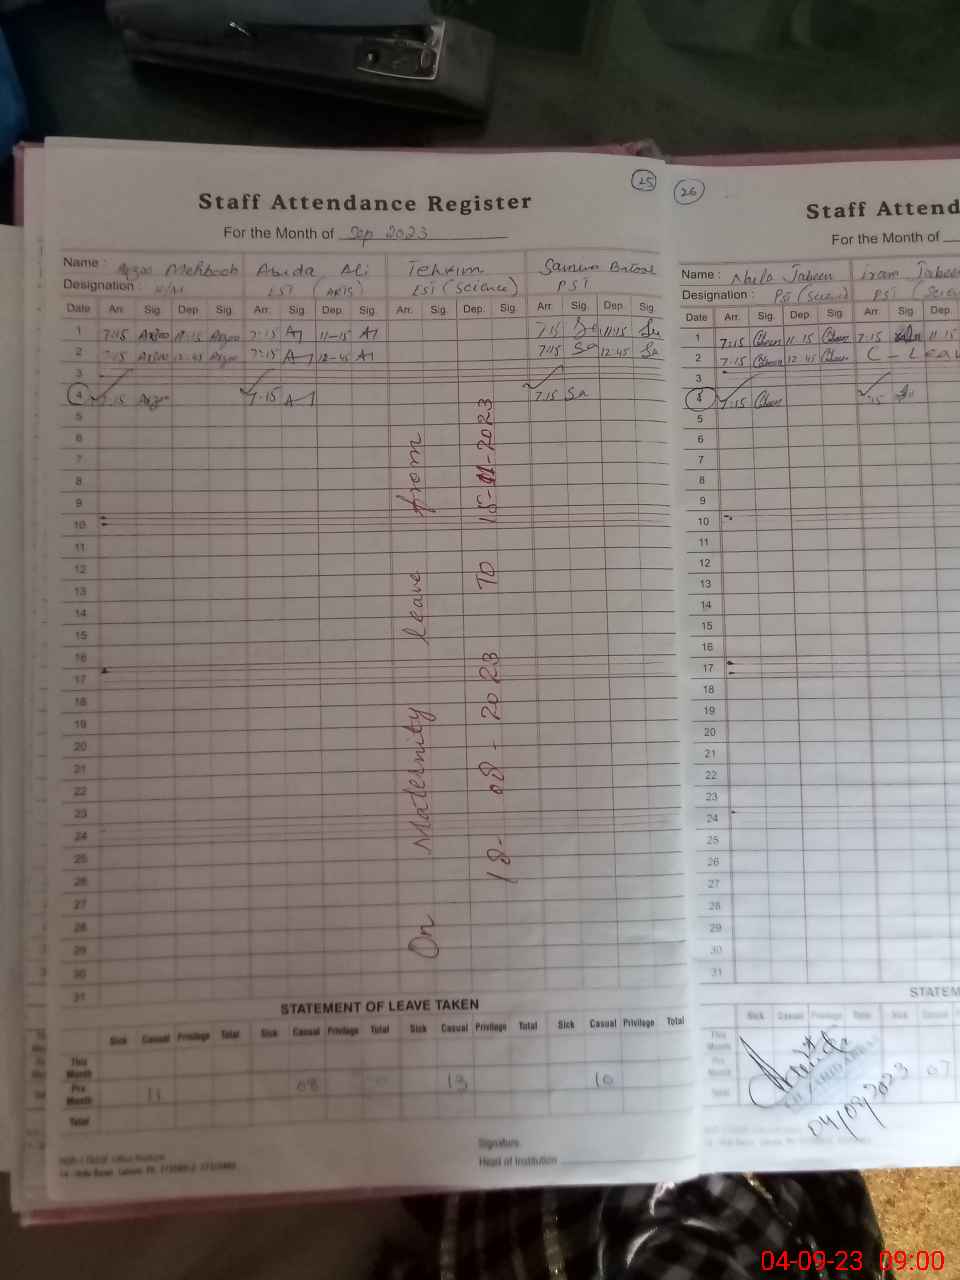 25
Staff Attendance Register
For the Month of Sep 2023
Name : Mehboob Abida Ali Tehrim Batool
Designation : EST (ARTS) ESI (Science) PST
Date Arr. Sig. Dep. Sig. Arr. Sig. Dep. Sig. Arr. Sig. Dep. Sig. Arr. Sig. Dep. Sig.
1 7:15 11:15 7:15 11-15 7:15 11:15
2 7:15 12:45 7:15 12-45 7:15 Sa 12:45 Sa
3
4 7:15 7:15 7:15 Sa
5
6
7
8
9
10
11
12
13
14
15
16
17
18
19
20
21
22
23
24
25
26
27
28
29
30
31
On Maternity leave from
18-08-2023 TO 15-11-2023
STATEMENT OF LEAVE TAKEN
Sick Casual Privilege Total Sick Casual Privilege Total Sick Casual Privilege Total Sick Casual Privilege Total
This Month
Pre Month 11 08 13 10
Total
Signature
Head of Institution
26
Staff Attend
For the Month of
Name : Naila Jabeen Iram Jabee
Designation : PST
Date Arr. Sig. Dep. Sig. Arr. Sig. Dep.
1 7:15 11:15 7:15 11:15
2 7:15 12:45 C - Leav
3
4 7:15 7:15
5
6
7
8
9
10
11
12
13
14
15
16
17
18
19
20
21
22
23
24
25
26
27
28
29
30
31
STATEM
Sick Casual Privilege Total Sick Casual
This Month
Month
Total
07
04/09/2023
04-09-23 09:00